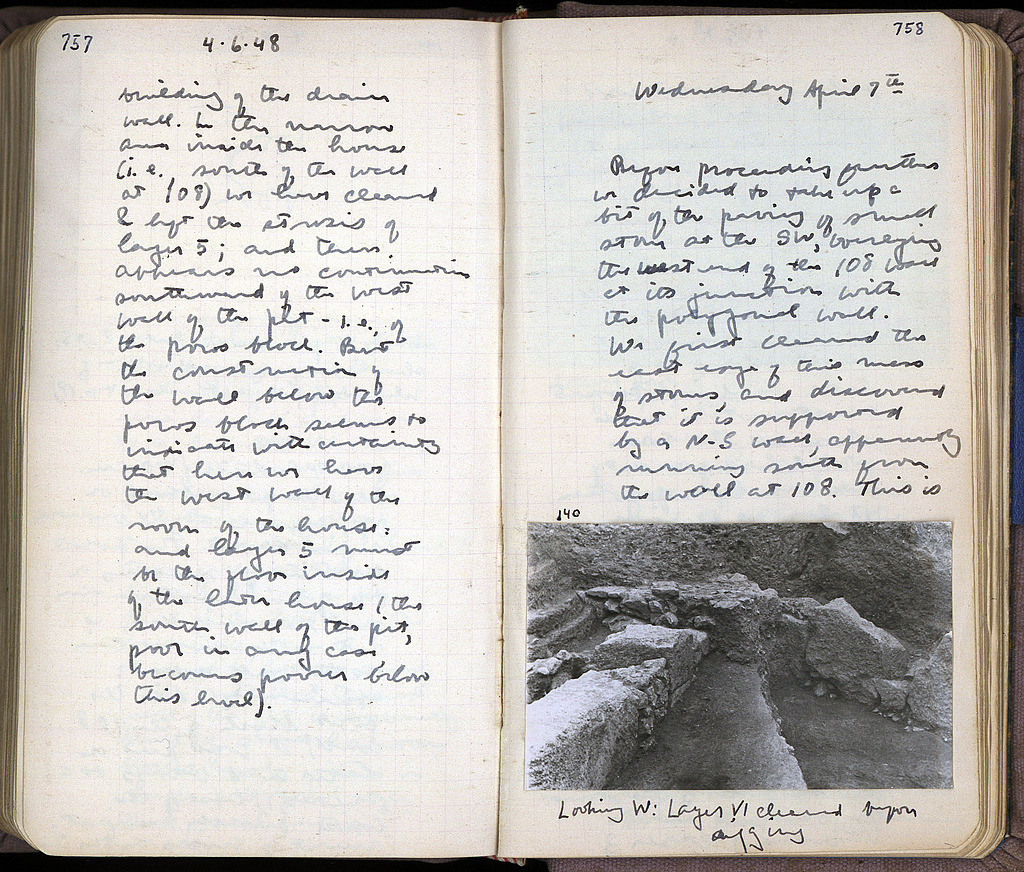 757
4.6.48
building of the drain
wall. In the narrow
area inside the house
(i.e., south of the wall
at 108) we have cleaned
& left the strosis of
layer 5; and there
appears no continuation
southward of the west
wall of the pit - i.e., of
the poros block. But
the construction of
the wall below the
poros block seems to
indicate with certainty
that here we have
the west wall of the
room of the house:
and layer 5 must
be the floor inside
of the later house (the
south wall of the pit,
poor in any case
becomes poorer below
this level).
758
Wednesday April 7th
Before proceeding further
we decided to take up a
bit of the paving of small
stones at the SW, overlying
the west end of the 108 wall
at its junction with
the polygonal wall.
We first cleaned the
east edge of this mass
of stones, and discovered
that it is supported
by a N-S wall, apparently
running south from
the wall at 108. This is
140
Looking W: Layer VI cleaned before
digging